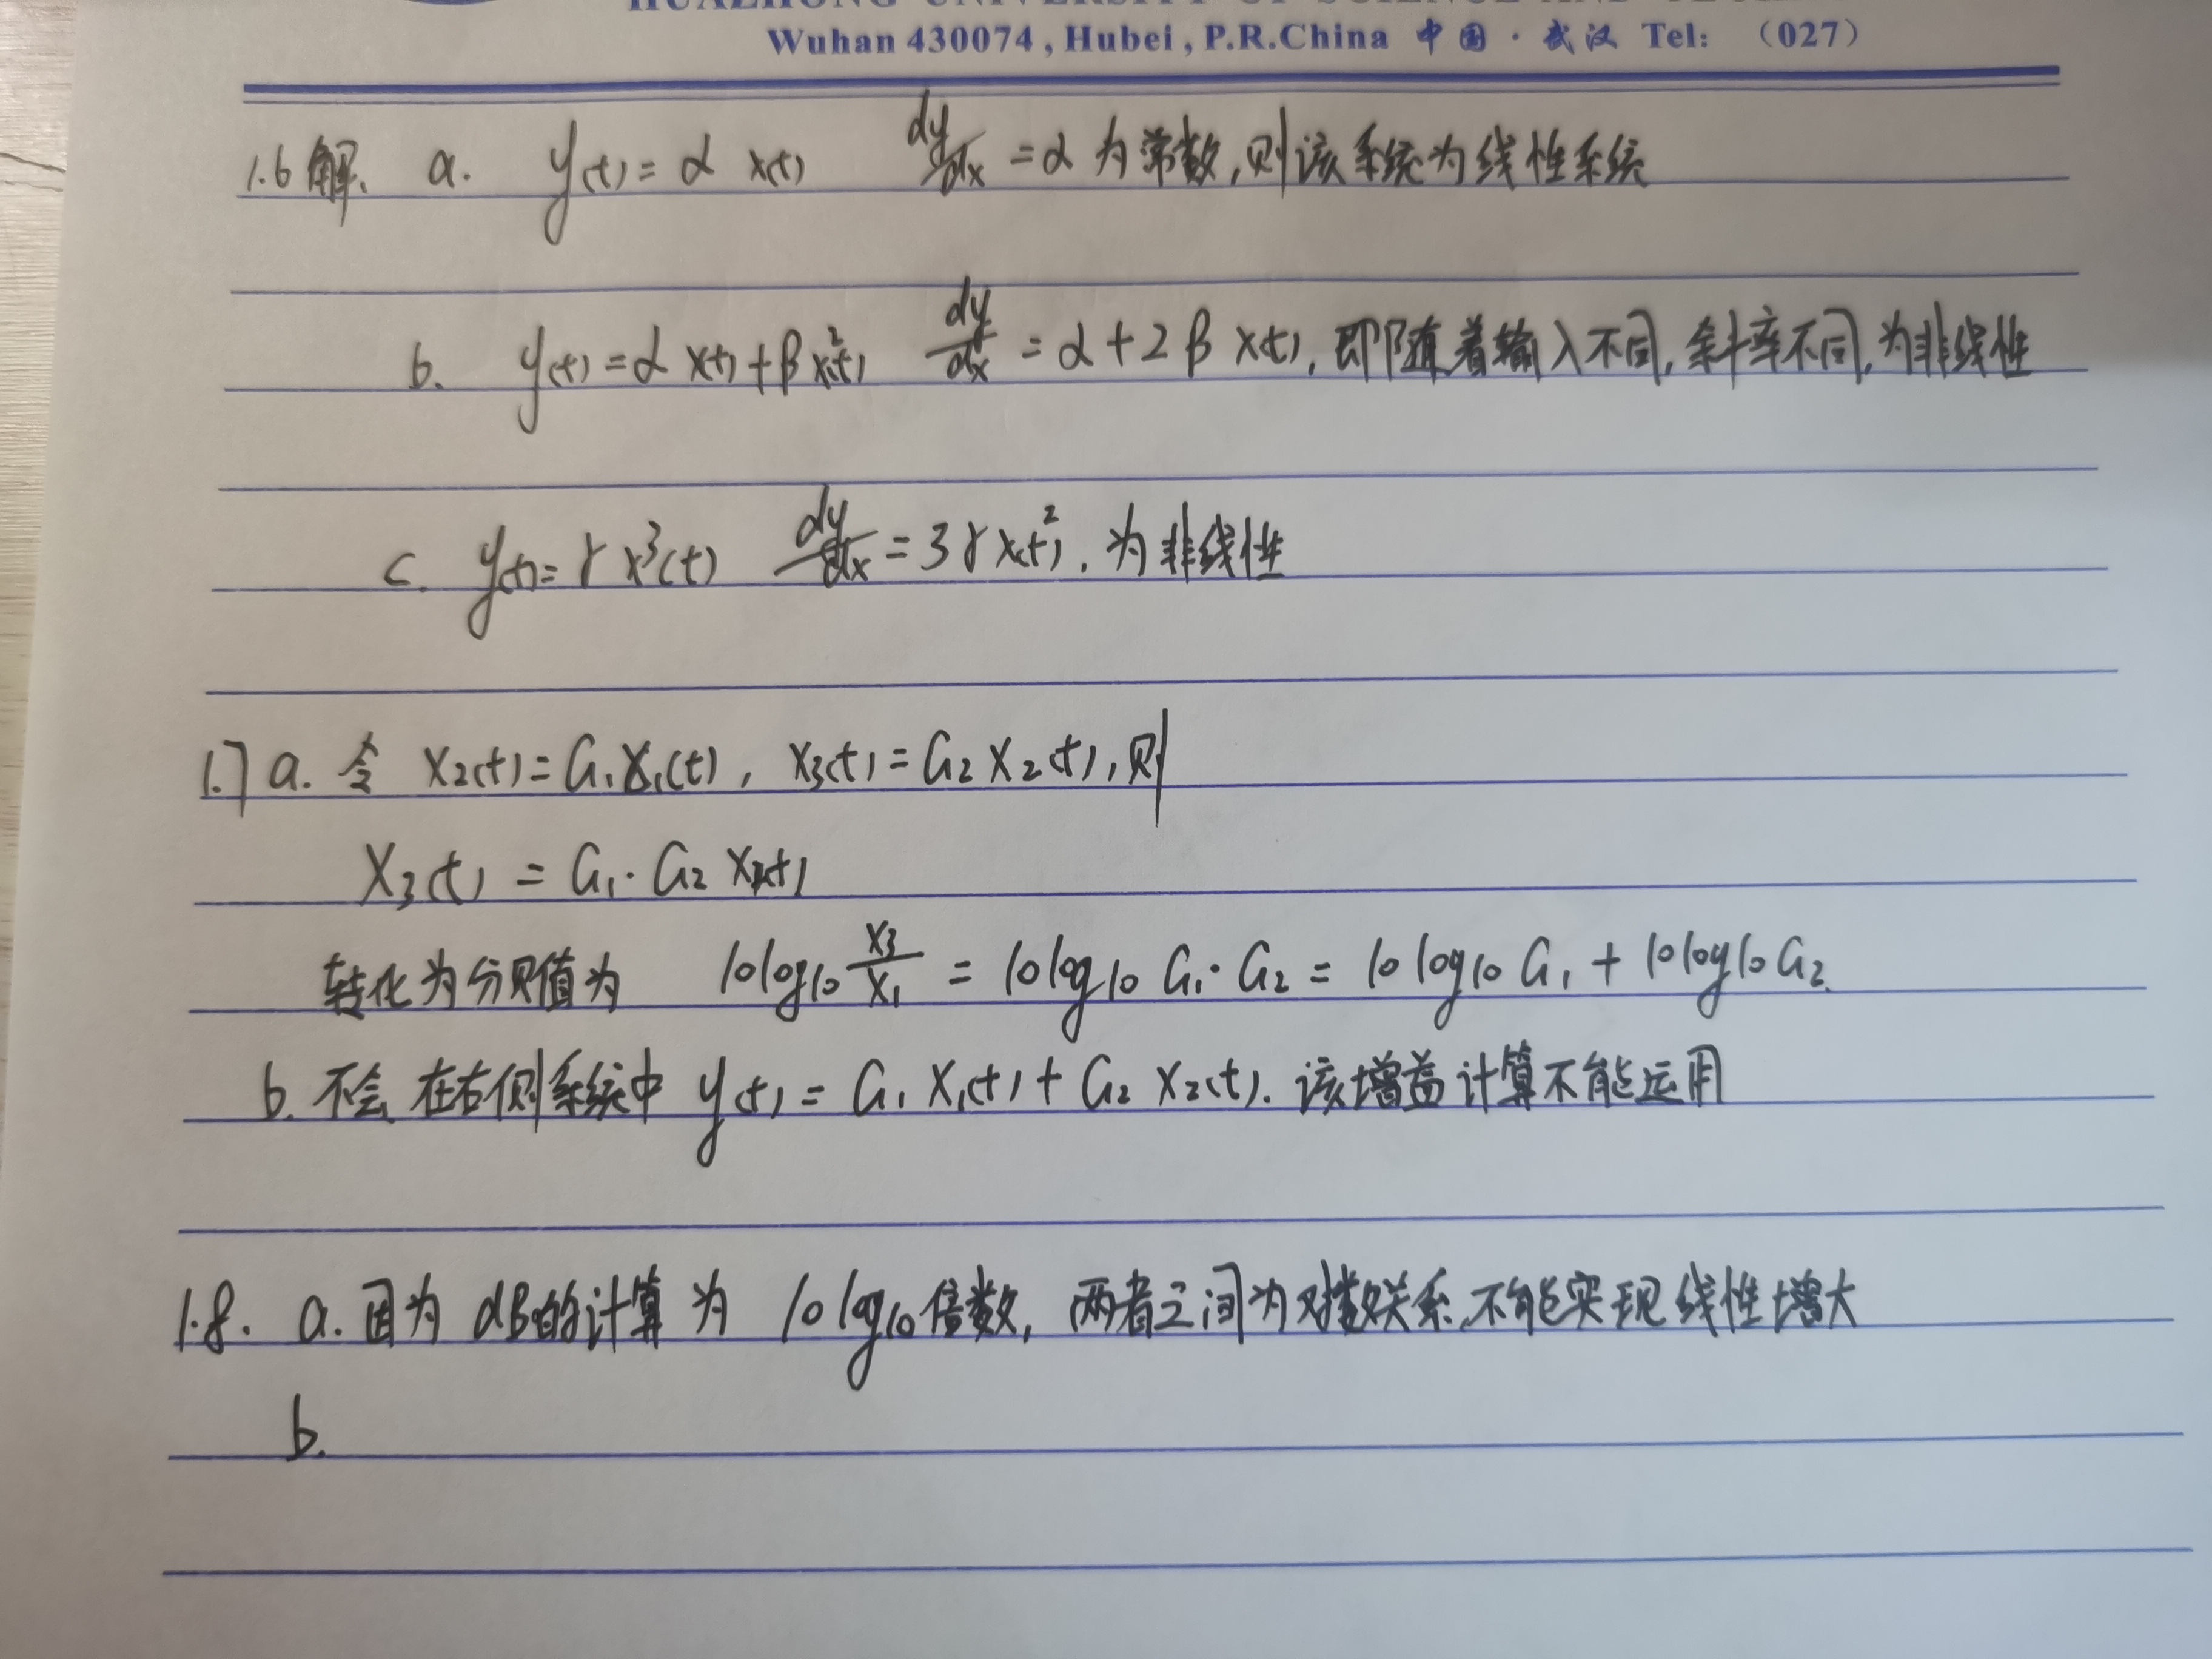 Wuhan 430074, Hubei, P.R.China 中国·武汉 Tel: (027)
1.6 解. a. y(t) = α x(t) dy/dx = α 为常数, 则该系统为线性系统
b. y(t) = α x(t) + β x²(t) dy/dx = α + 2β x(t), 即随着输入不同, 斜率不同, 为非线性
c. y(t) = γ x³(t) dy/dx = 3γ x(t)². 为非线性
1.7 a. 令 x₂(t) = G₁x₁(t), x₃(t) = G₂ x₂(t), 则
x₃(t) = G₁·G₂ x₁(t)
转化为分贝值为 10log₁₀ x₃/x₁ = 10log₁₀ G₁·G₂ = 10log₁₀ G₁ + 10log₁₀G₂.
b. 不会 在右侧系统中 y(t) = G₁ x₁(t) + G₂ x₂(t). 该增益计算不能运用
1.8. a. 因为 dB的计算为 10log₁₀倍数, 两者之间为对数关系, 不能实现线性增大
b.